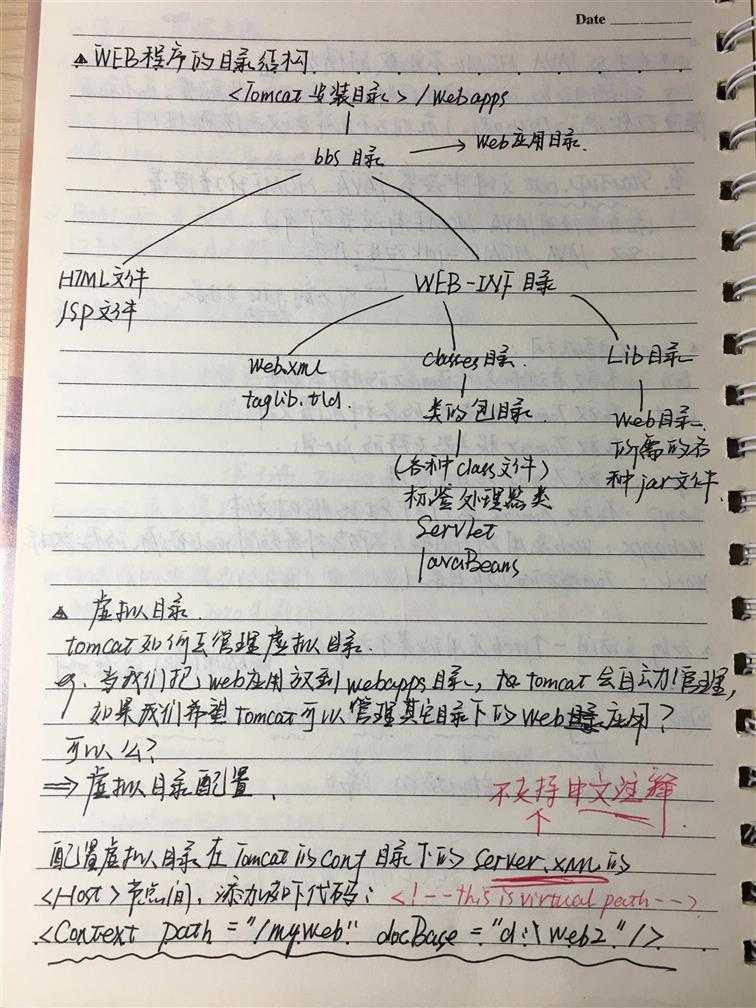 Date
△ WEB程序的目录结构
<Tomcat 安装目录>/webapps
bbs 目录 → Web应用目录.
HTML文件
JSP文件
WEB-INF 目录
Web.xml
taglib.tld.
classes目录.
类的包目录.
(各种class文件)
标签处理器类
Servlet
JavaBeans
Lib目录
Web目录.
所需的各
种jar文件.
△ 虚拟目录.
tomcat如何去管理虚拟目录.
eg. 当我们把web应用放到webapps目录, tomcat会自动管理,
如果我们希望tomcat可以管理其它目录下的Web应用?
可以么?
⇒ 虚拟目录配置.
不支持中文注释
↑
配置虚拟目录在Tomcat的conf目录下的server.xml的
<Host>节点间, 添加如下代码: <!--this is virtual path-->
<Context path="/myweb" docBase="d:\web2"/>